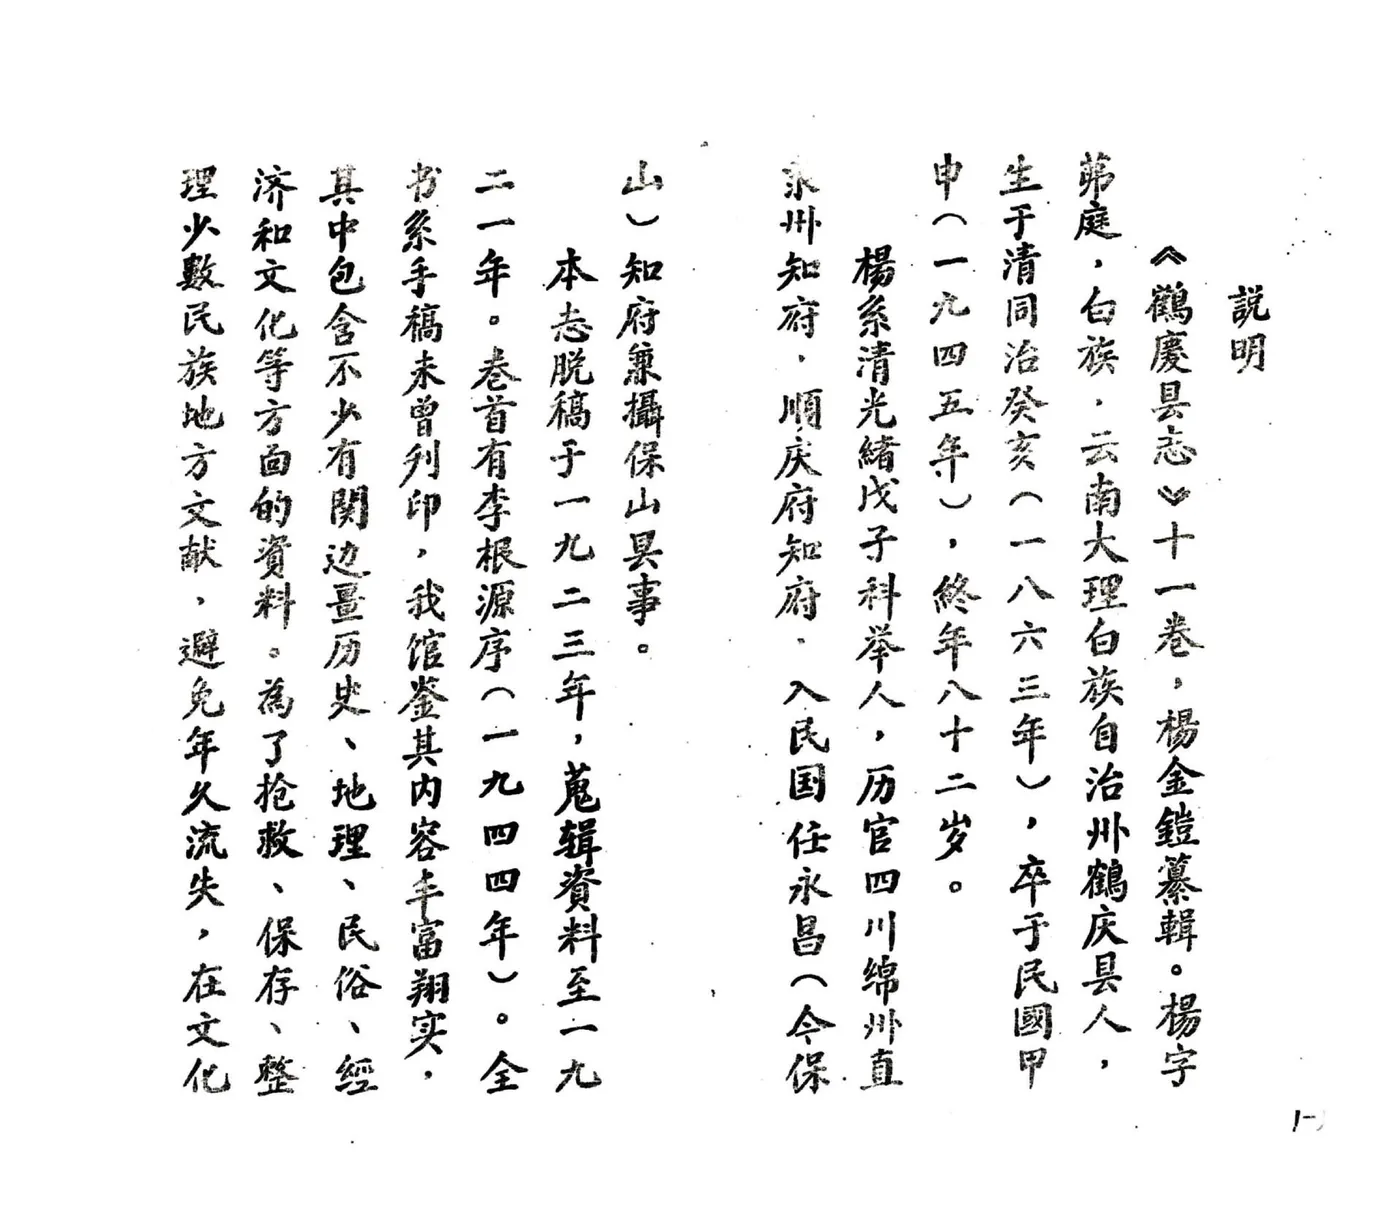 説明
《鶴慶县志》十一卷，楊金鎧纂輯。楊字
茀庭，白族．云南大理白族自治州鶴庆县人，
生于清同治癸亥（一八六三年），卒于民國甲
申（一九四五年），終年八十二岁。
楊系清光緒戊子科举人，历官四川绵州直
隶州知府．順庆府知府．入民国任永昌（今保
山）知府兼攝保山县事。
本志脱稿于一九二三年，蒐辑資料至一九
二一年。卷首有李根源序（一九四四年）。全
书系手稿未曾刋印，我馆鉴其内容丰富翔实，
其中包含不少有関边畺历史、地理、民俗、經
济和文化等方面的資料。為了抢救、保存、整
理少數民族地方文献，避免年久流失，在文化
1-